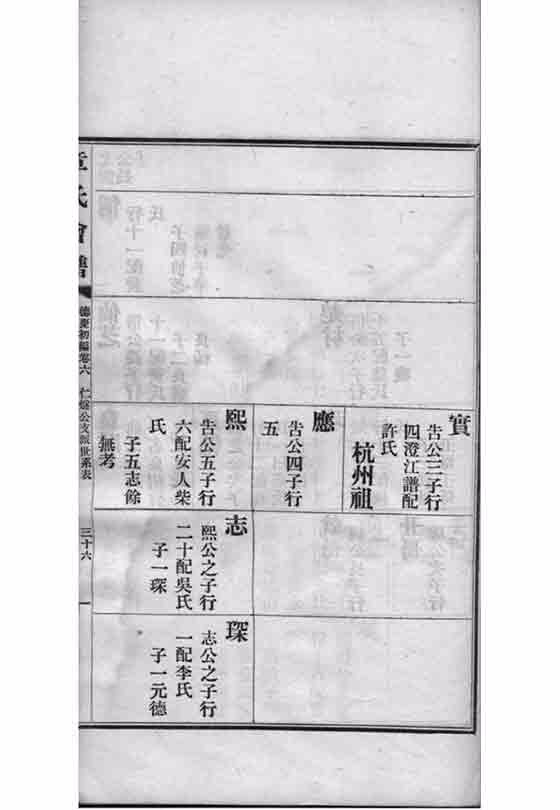 實
告公三子行
四澄江譜配
許氏
杭州祖
應
告公四子行
五
熙
告公五子行
六配安人柴
氏
子五志餘
無考
志
熙公之子行
二十配吳氏
子一琛
琛
志公之子行
一配李氏
子一元德
章氏會譜
德慶初編卷六
仁燧公支派世系表
三十六